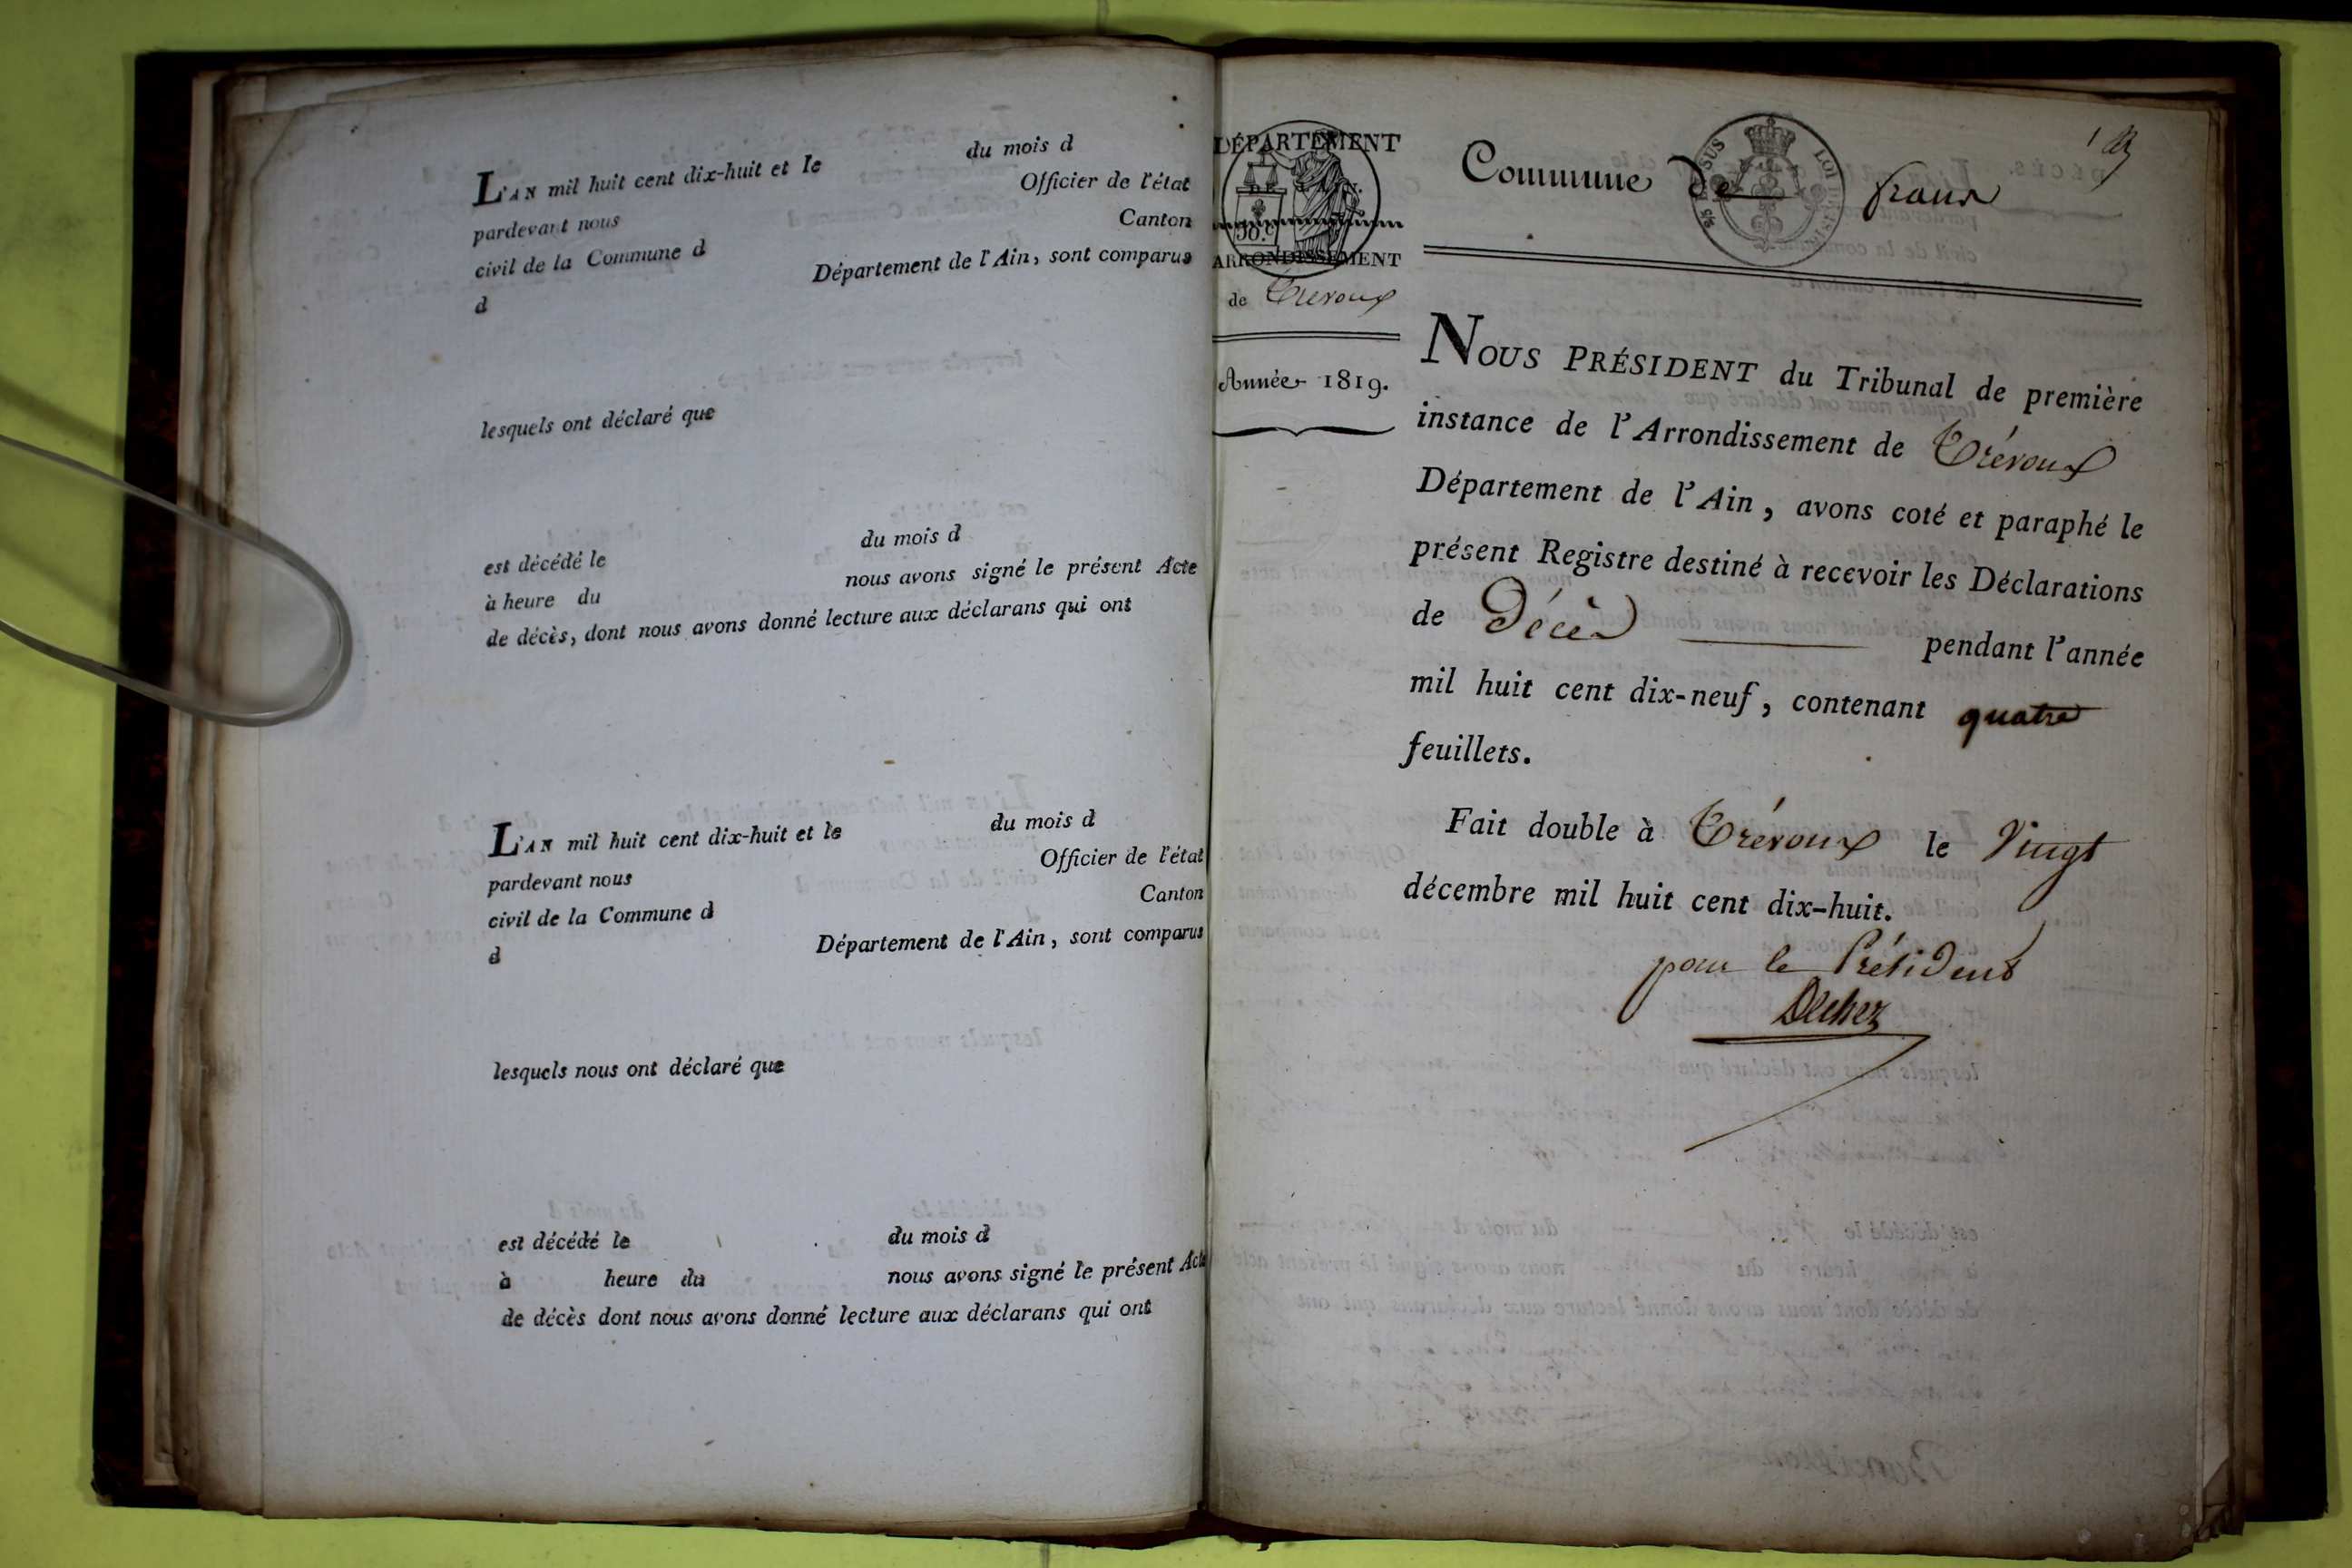 L'AN mil huit cent dix-huit et le du mois d
pardevant nous Officier de l'état
civil de la Commune d Canton
d Département de l'Ain, sont comparus
lesquels ont déclaré que
est décédé le du mois d
à heure du nous avons signé le présent Acte
de décès, dont nous avons donné lecture aux déclarans qui ont
L'AN mil huit cent dix-huit et le du mois d
pardevant nous Officier de l'état
civil de la Commune d Canton
d Département de l'Ain, sont comparus
lesquels nous ont déclaré que
est décédé le du mois d
à heure du nous avons signé le présent Acte
de décès dont nous avons donné lecture aux déclarans qui ont
DÉPARTEMENT
DE L'AIN.
50.c
ARRONDISSEMENT
de Trévoux
Année 1819.
Commune de frans
NOUS PRÉSIDENT du Tribunal de première
instance de l'Arrondissement de Trévoux
Département de l'Ain, avons coté et paraphé le
présent Registre destiné à recevoir les Déclarations
de Décès pendant l'année
mil huit cent dix-neuf, contenant quatre
feuillets.
Fait double à Trévoux le Vingt
décembre mil huit cent dix-huit.
pour le Président